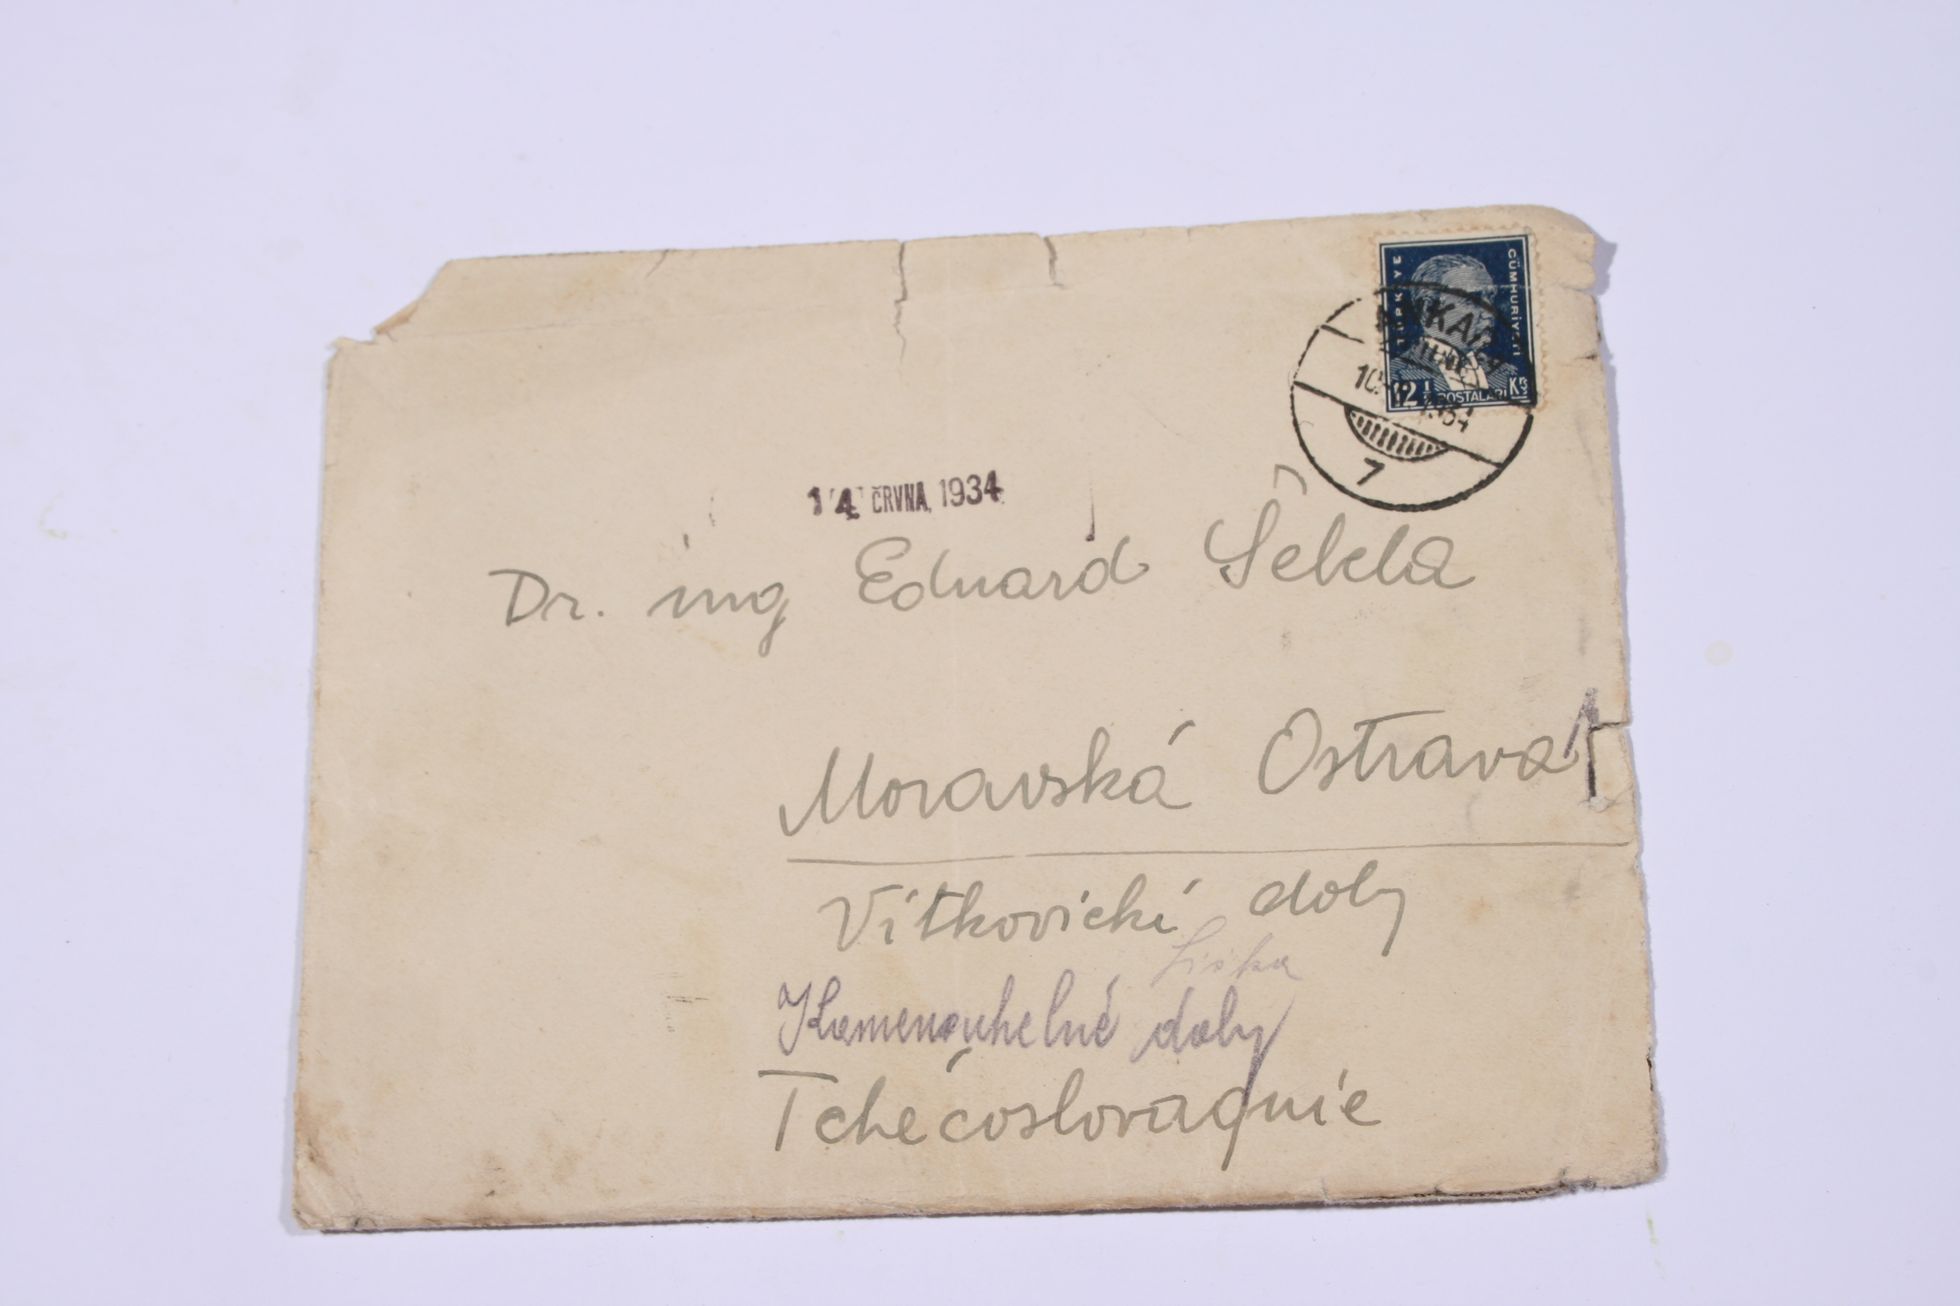 TÜRKİYE CÜMHURİYETİ
12½ POSTALARI Krş
ANKARA
1934
7
14 ČRVNA 1934
Dr. ing Eduard Šebela
Moravská Ostrava
Vítkovické doly
Liška
Kamenouhelné doly
Tchécoslovaquie